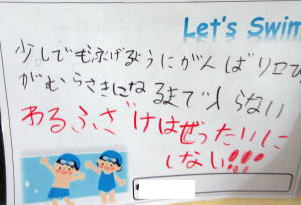 Let's Swim
少しでも泳げるようにがんばり口び
がむらさきになるまで入らない
わるふざけはぜったいに
しない!!!